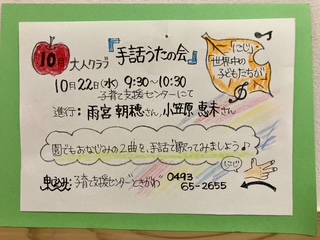 10月 大人クラブ 『手話うたの会』
にじ
世界中の
子どもたちが
10月22日(水) 9:30~10:30
子育て支援センターにて
進行: 雨宮 朝穂さん, 小笠原 恵未さん
園でもおなじみの2曲を、手話で歌ってみましょう♪
にじ
申し込み: 子育て支援センターときがわ 0493
65-2655